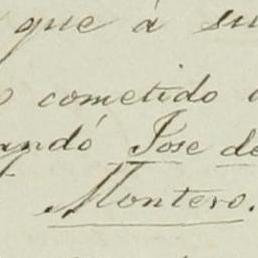 que á su
cometido
andó Jose de
Montero.